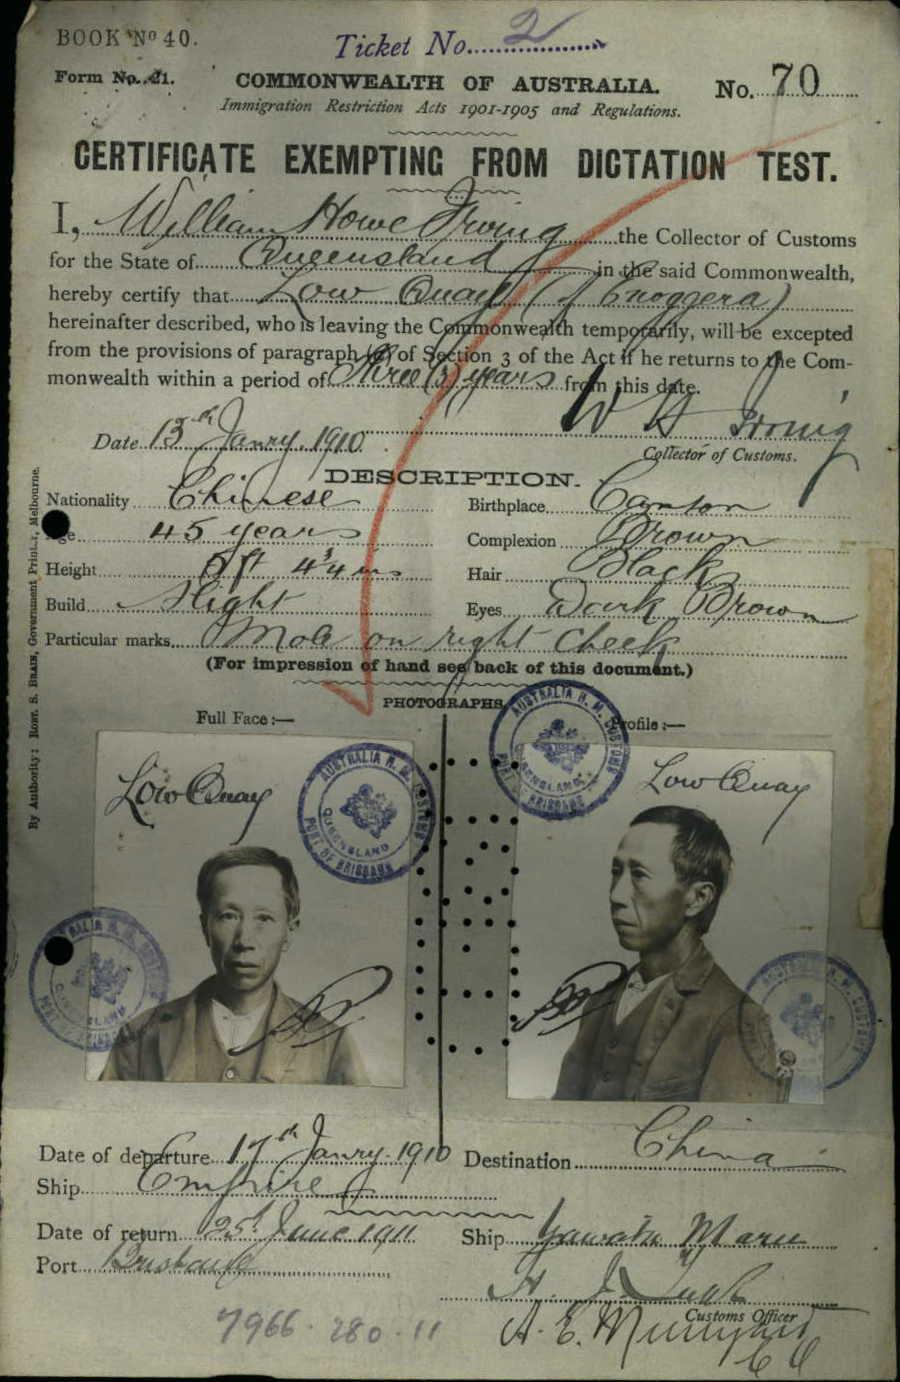 BOOK No 40.
Ticket No. 2
Form No. 21.
COMMONWEALTH OF AUSTRALIA.
No. 70
Immigration Restriction Acts 1901-1905 and Regulations.
CERTIFICATE EXEMPTING FROM DICTATION TEST.
I, William Howe Irving the Collector of Customs
for the State of Queensland in the said Commonwealth,
hereby certify that Low Quay (of Enoggera)
hereinafter described, who is leaving the Commonwealth temporarily, will be excepted
from the provisions of paragraph (a) of Section 3 of the Act if he returns to the Com-
monwealth within a period of Three (3) years from this date.
W H Irving
Date 13th Janry. 1910
Collector of Customs.
DESCRIPTION.
Nationality Chinese
Birthplace Canton
Age 45 years
Complexion Brown
Height 5ft 4¾ins
Hair Black
Build Slight
Eyes Dark Brown
Particular marks Mole on right cheek
(For impression of hand see back of this document.)
PHOTOGRAPHS
Full Face :—
Profile :—
Low Quay
Low Quay
AUSTRALIA H. M. CUSTOMS
QUEENSLAND
PORT OF BRISBANE
AUSTRALIA H. M. CUSTOMS
QUEENSLAND
PORT OF BRISBANE
AUSTRALIA H. M. CUSTOMS
QUEENSLAND
PORT OF BRISBANE
Date of departure 17th Janry. 1910
Destination China
Ship Empire
Date of return 25th June 1911
Ship Yawata Maru
Port Brisbane
Customs Officer
7966.280.11
By Authority: ROBT. S. BRAIN, Government Printer, Melbourne.